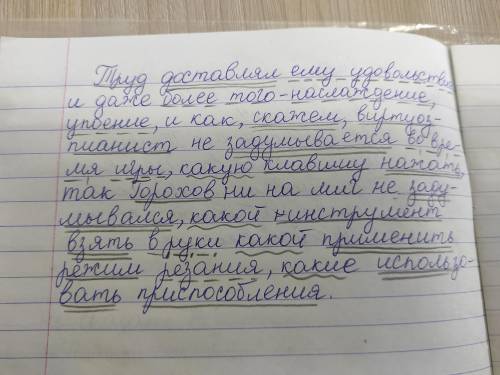 Труд доставлял ему удовольствие
и даже более того-наслаждение,
упоение, и как, скажем, виртуоз-
пианист не задумывается во вре-
мя игры, какую клавишу нажать,
так Горохов ни на миг не заду-
мывался, какой инструмент
взять в руки какой применить
режим резания, какие использо-
вать приспособления.